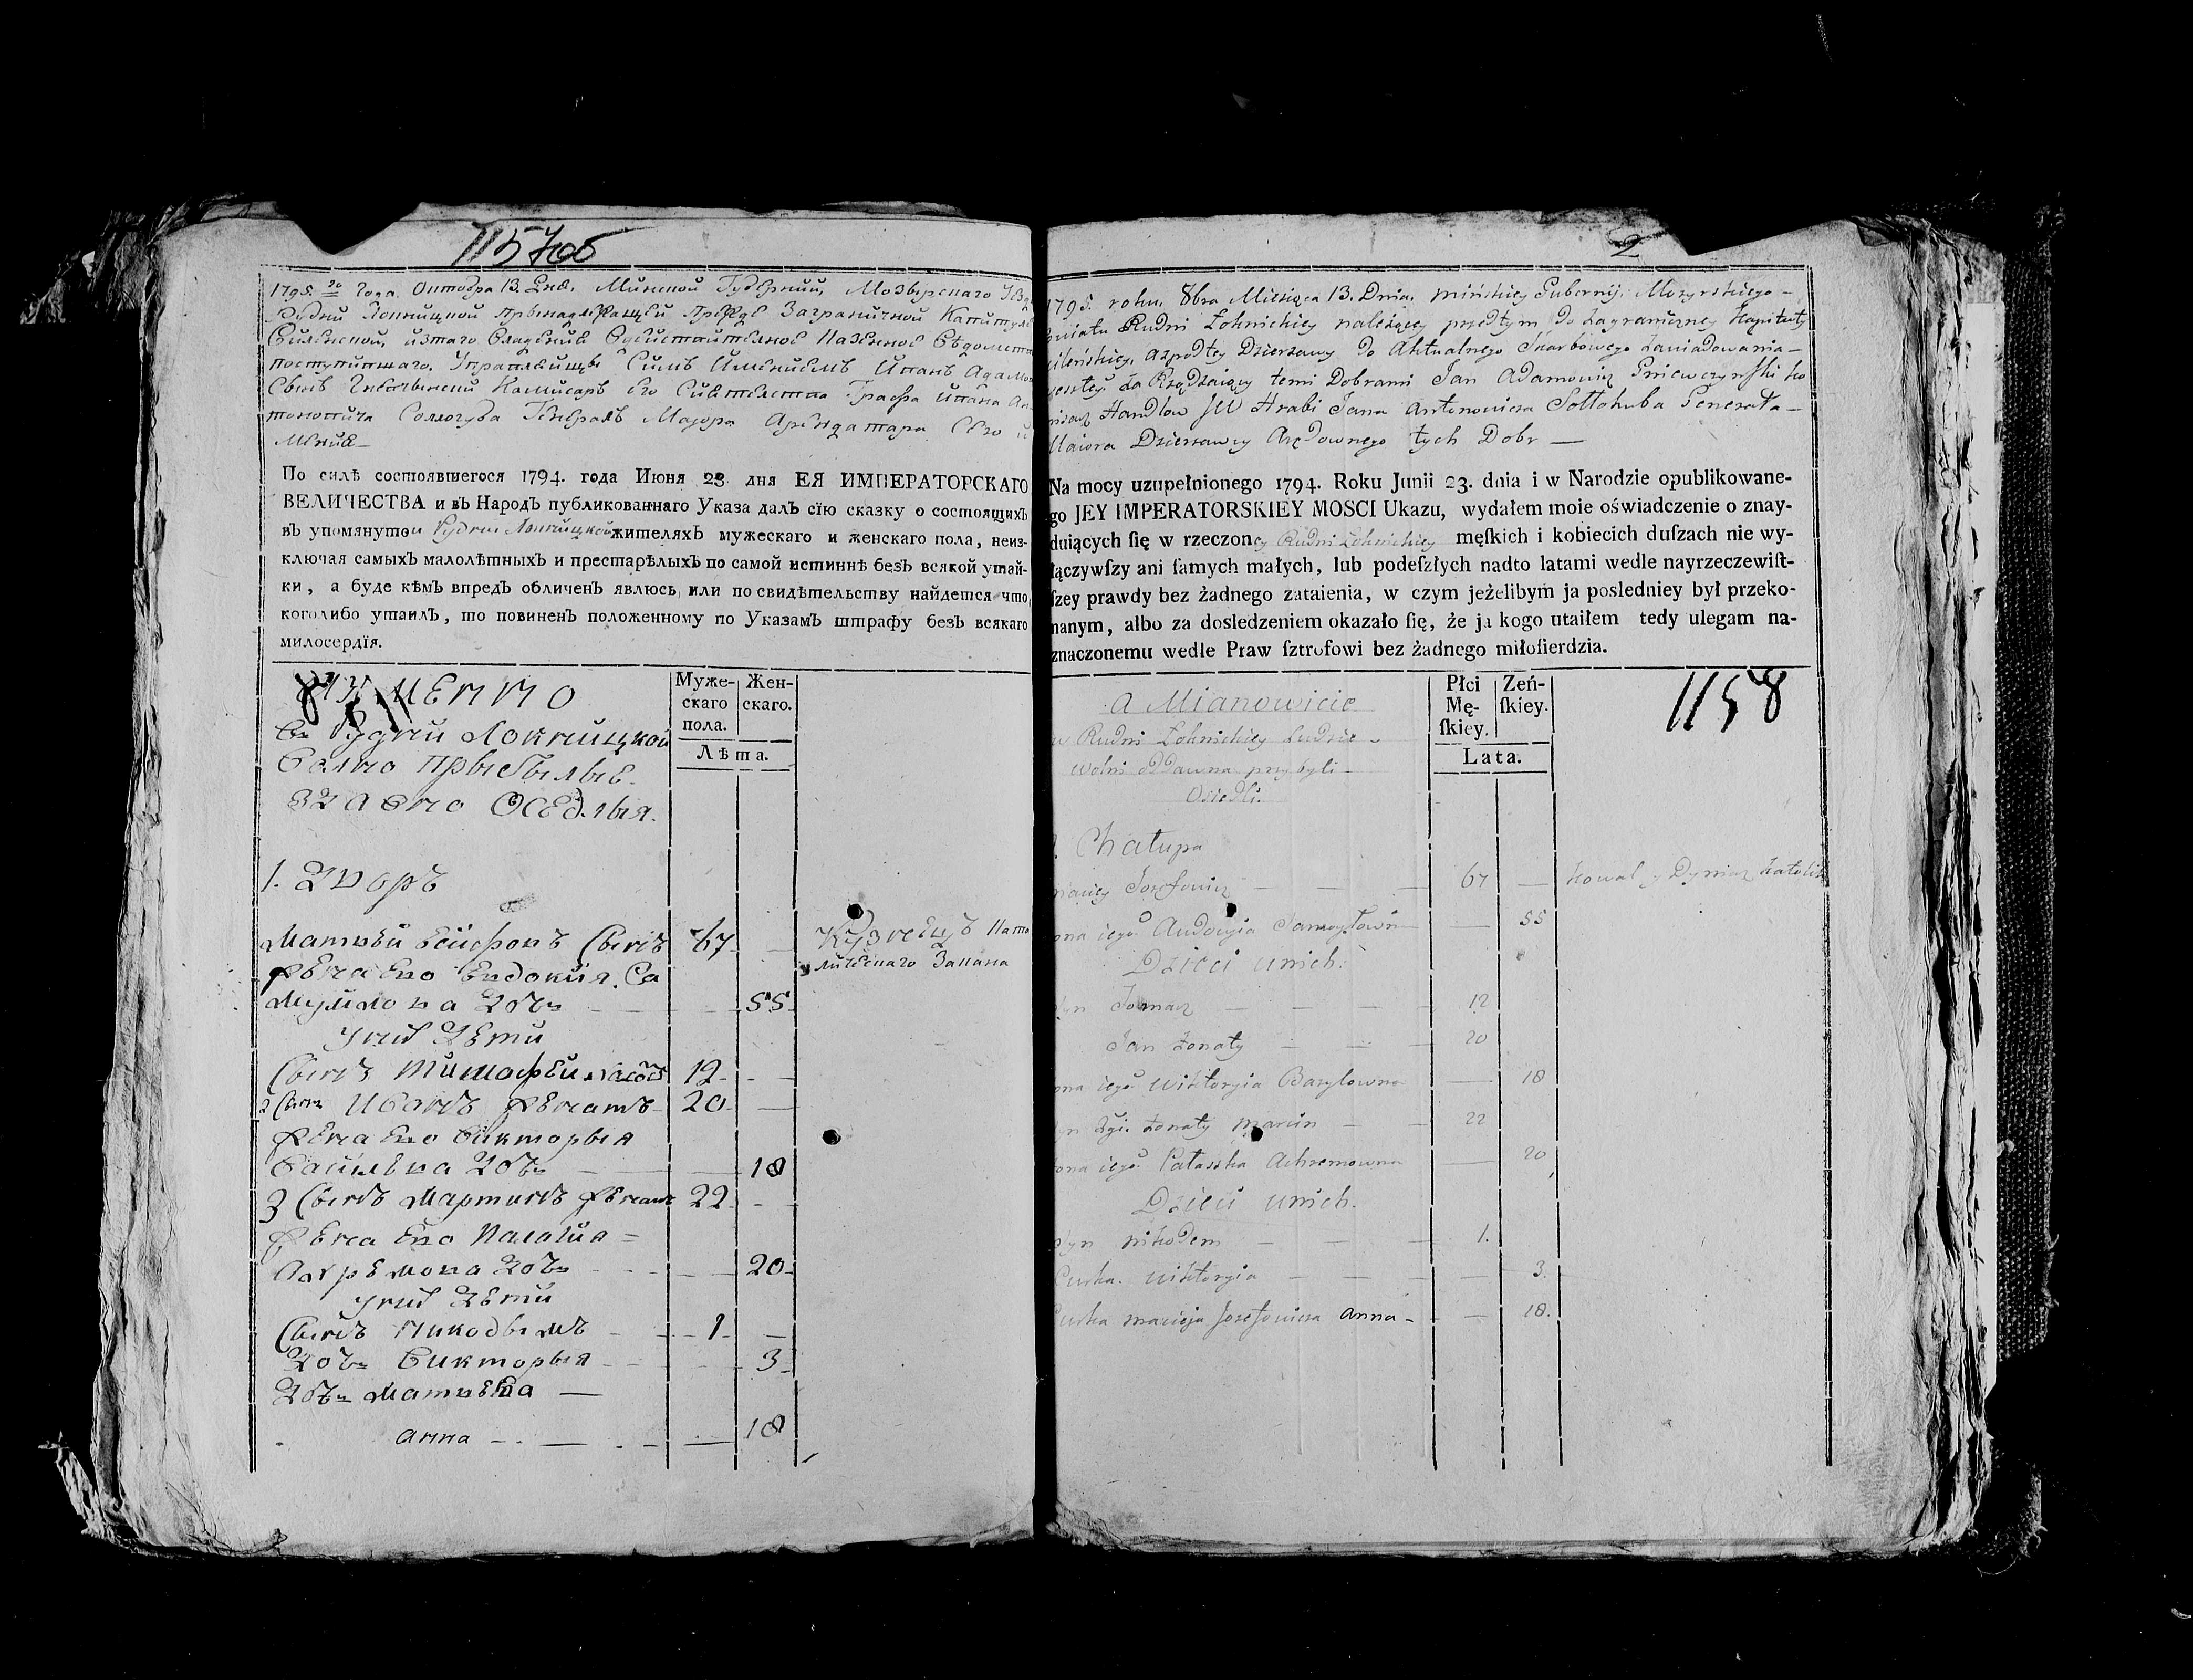 1157об
1795 го Года Октобра 13. Дня. Минской Губернии, Мозырскаго
Рудни Локницкой принадлежащей прежде Заграничной Капитулѣ
Виленской, изтаго Владения в Казенное Вѣдомство
поступившаго. Управляющы Симъ Имениемъ Иванъ Адамовъ
Сынъ Гневчинский Комисаръ Его Сиятелства Графа Ивана Ан
тоновича Сологуба Генералъ Маіора Арендатара Сего и
мения
По силѣ состоявшегося 1794. года Июня 23 дня ЕЯ ИМПЕРАТОРСКАГО
ВЕЛИЧЕСТВА и вЪ НародЪ публикованнаго Указа далЪ сїю сказку о состоящихЪ
вЪ упомянутой Рудни Локницкой жителяхЪ мужескаго и женскаго пола, неиз-
ключая самыхЪ малолѣтныхЪ и престарѣлыхЪ по самой истиннѣ безЪ всякой утай-
ки, а буде кѣмЪ впредЪ обличенЪ явлюсь, или по свидѣтельству найдется что
коголибо утаилЪ, то повиненЪ положенному по УказамЪ штрафу безЪ всякаго
милосердїя.
Имепно
Муже-
скаго
пола.
Жен-
скаго.
Лѣта.
въ Рудни Локницкой
Волно прыбылые
здавно Оседлыя.
1. Дворъ
Матвѣй Есифовъ Сынъ 67 — Кузнецъ Като
лическаго Закана
Жена Его Евдокия Са
муйлова Дочь — 55
У них Дети
Сынъ Тимофей 12 —
2 Сынъ Иванъ Женатъ 20 —
Жена Его Викторыя
Васильева Дочь — 18
3 Сынъ Мартинъ Женатъ 22 —
Жена Его Палагия
Ахремова Дочь — 20
У них Дети
Сынъ Никодымъ — 1 —
Дочь Викторыя — 3
Дочь Матвѣева —
Анна — 18
2
1795. roku. 8bra Miesiąca 13. Dnia. Mińskiey Gubernij. Mozyrskiego
Rudni Łoknickiey należącey przedtym do Zagraniczney Kapituły
wileńskiey, azpodtey Dzierżawy do Aktualnego Skarbowego Zawiadowania
Rządzaiący temi Dobrami Jan Adamowicz Gniewczynski ko
Handlow JW Hrabi Jana Antonowicza Sołłohuba Generała
Maiora Dzierżawcy Arędownego tych Dobr —
Na mocy uzupełnionego 1794. Roku Junii 23. dnia i w Narodzie opublikowane-
go JEY IMPERATORSKIEY MOSCI Ukazu, wydałem moie oświadczenie o znay-
duiących ſię w rzeczoney Rudni Łoknickiey męſkich i kobiecich duſzach nie wy-
łączywſzy ani ſamych małych, lub podeſzłych nadto latami wedle nayrzeczewiſt-
ſzey prawdy bez żadnego zataienia, w czym jeżelibym ja posledniey był przeko-
nanym, albo za dosledzeniem okazało ſię, że ja kogo utaiłem tedy ulegam na-
znaczonemu wedle Praw ſztrofowi bez żadnego miłoſierdzia.
a Mianowicie
Płci
Mę-
ſkiey.
Zeń-
ſkiey.
Lata.
1158
w Rudni Łoknickiey Ludzie
wolni oddawna przybyli
Osiedli.
1. Chałupa
Maciey Jozefowicz — 67 — kowal y Dymiarz katolik
Żona iego Audocyia Samoyłowna — 55
Dzieci unich:
Syn Tomasz — 12
Jan żonaty — 20
Żona iego Wiktoryia Bazylowna — 18
Syn żonaty Marcin — 22
Żona iego Pałaszka Achremowna — 20
Dzieci unich.
Syn nikodem — 1.
Curka. Wiktoryia — 3.
Curka macieja Jozefowicza anna — 18.